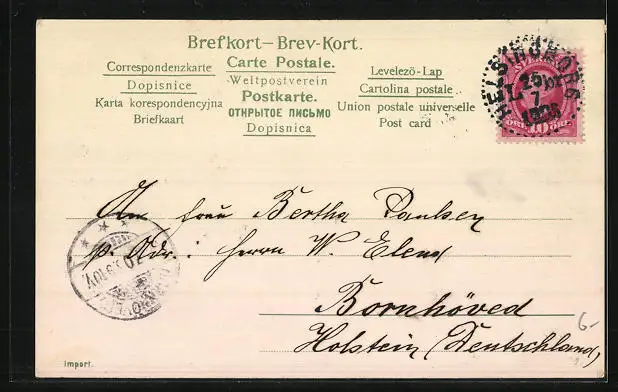 Brefkort—Brev-Kort.
Correspondenzkarte
Carte Postale.
Levelezö-Lap
Dopisnice
Weltpostverein
Cartolina postale
Karta korespondencyjna
Postkarte.
Union postale universelle
Briefkaart
ОТКРЫТОЕ ПИСЬМО
Post card
Dopisnica
HELSINGBORG
L
26
7
10 ÖRE
An Frau Bertha Paulsen
p. Adr.: Herrn W. Elend
Bornhöved
Holstein (Deutschland)
6-
Import.